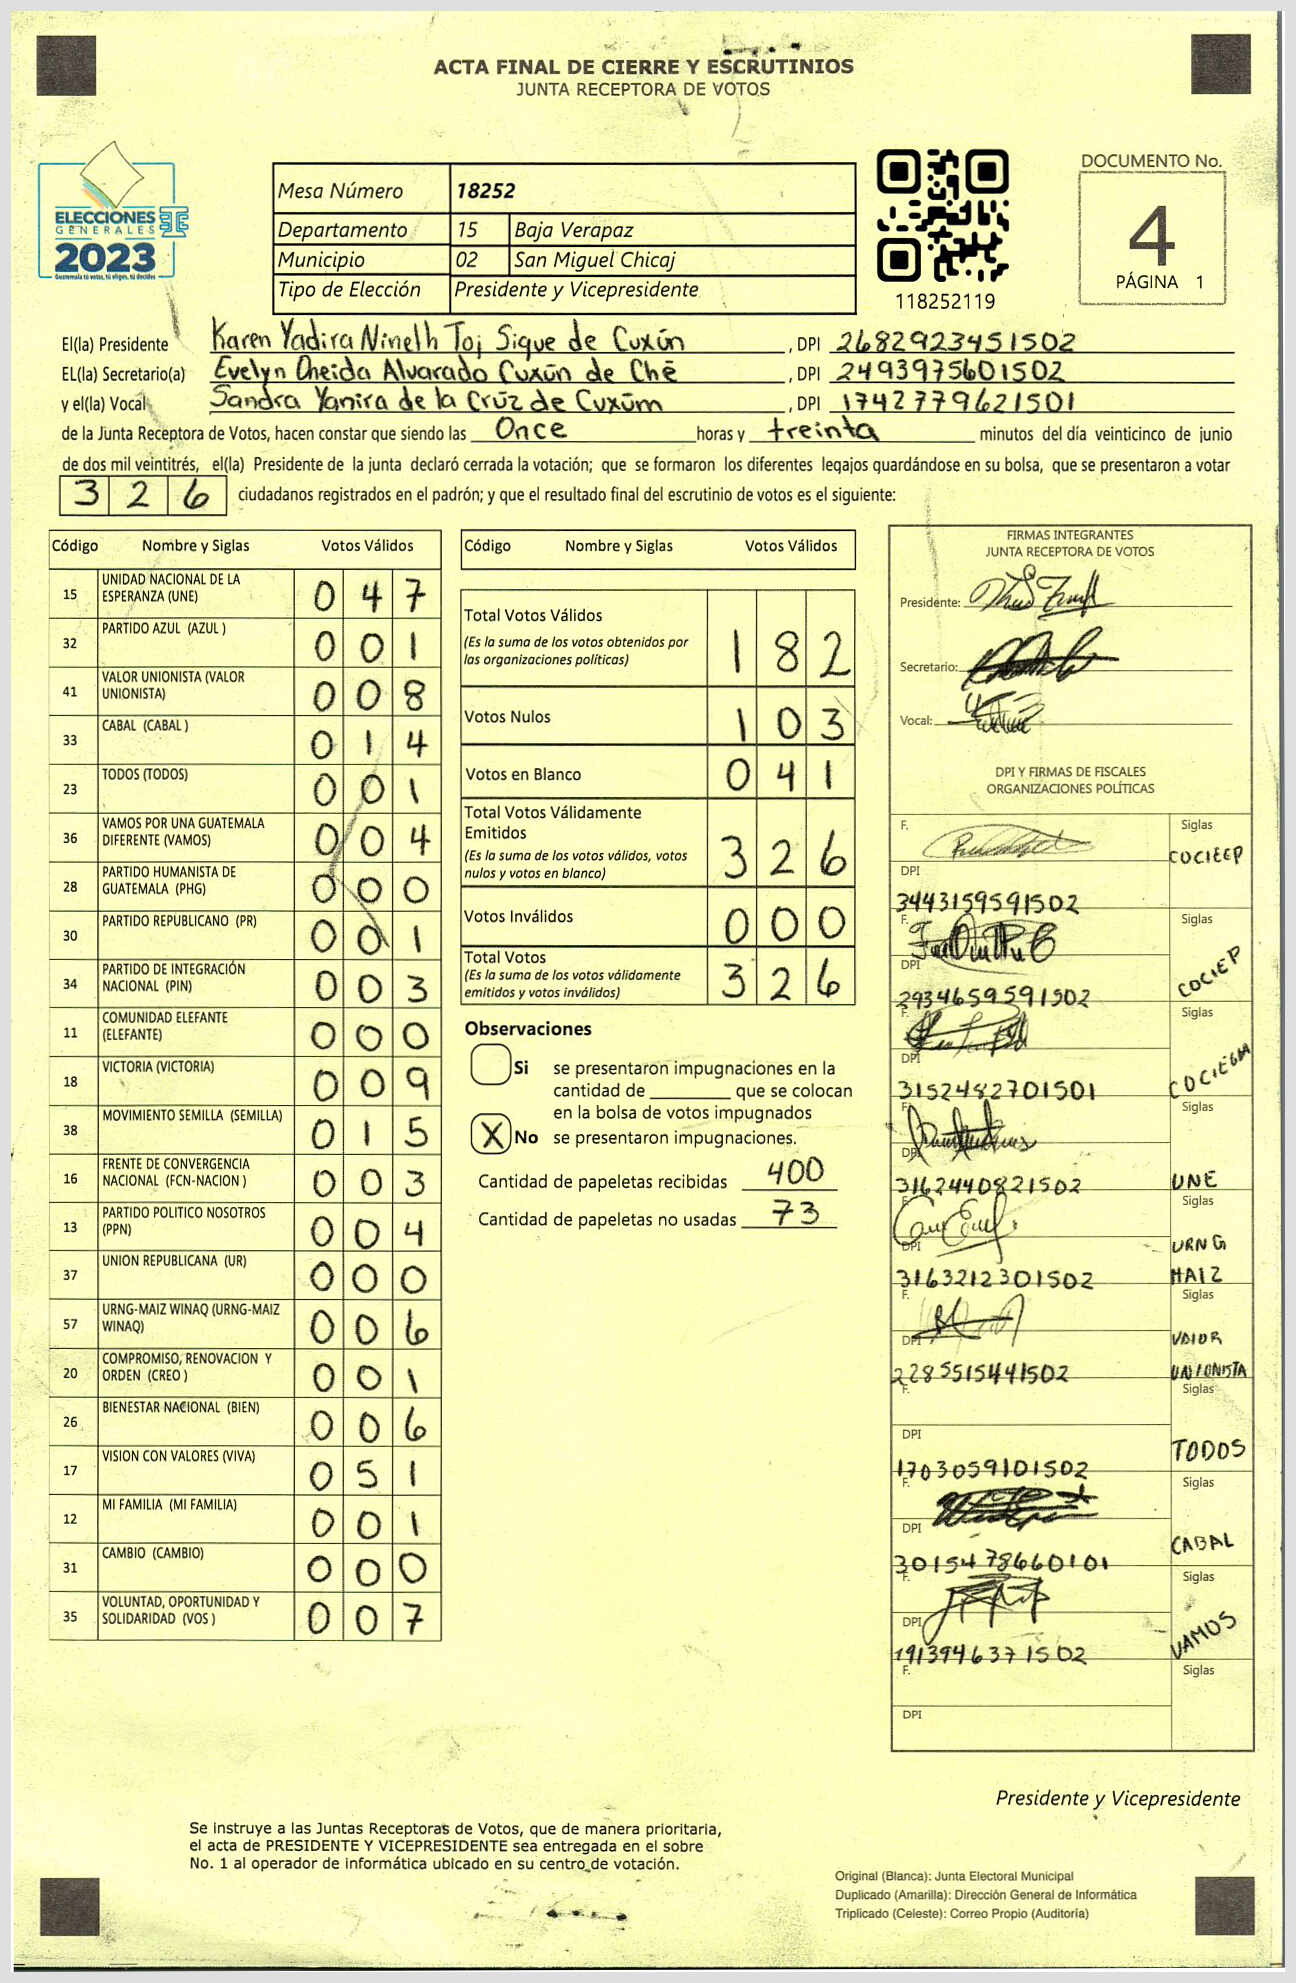 ACTA FINAL DE CIERRE Y ESCRUTINIOS
JUNTA RECEPTORA DE VOTOS
ELECCIONES
GENERALES
2023
Guatemala tú votas, tú eliges, tú decides
Mesa Número 18252
Departamento 15 Baja Verapaz
Municipio 02 San Miguel Chicaj
Tipo de Elección Presidente y Vicepresidente
118252119
DOCUMENTO No.
4
PÁGINA 1
El(la) Presidente Karen Yadira Nineth Toj Sique de Cuxún , DPI 2682923451502
EL(la) Secretario(a) Evelyn Oneida Alvarado Cuxún de Ché , DPI 2493975601502
y el(la) Vocal Sandra Yanira de la Crúz de Cuxúm , DPI 1742779621501
de la Junta Receptora de Votos, hacen constar que siendo las Once horas y treinta minutos del día veinticinco de junio
de dos mil veintitrés, el(la) Presidente de la junta declaró cerrada la votación; que se formaron los diferentes legajos guardándose en su bolsa, que se presentaron a votar
3 2 6 ciudadanos registrados en el padrón; y que el resultado final del escrutinio de votos es el siguiente:
Código Nombre y Siglas Votos Válidos
15 UNIDAD NACIONAL DE LA ESPERANZA (UNE) 0 4 7
32 PARTIDO AZUL (AZUL ) 0 0 1
41 VALOR UNIONISTA (VALOR UNIONISTA) 0 0 8
33 CABAL (CABAL ) 0 1 4
23 TODOS (TODOS) 0 0 1
36 VAMOS POR UNA GUATEMALA DIFERENTE (VAMOS) 0 0 4
28 PARTIDO HUMANISTA DE GUATEMALA (PHG) 0 0 0
30 PARTIDO REPUBLICANO (PR) 0 0 1
34 PARTIDO DE INTEGRACIÓN NACIONAL (PIN) 0 0 3
11 COMUNIDAD ELEFANTE (ELEFANTE) 0 0 0
18 VICTORIA (VICTORIA) 0 0 9
38 MOVIMIENTO SEMILLA (SEMILLA) 0 1 5
16 FRENTE DE CONVERGENCIA NACIONAL (FCN-NACION ) 0 0 3
13 PARTIDO POLITICO NOSOTROS (PPN) 0 0 4
37 UNION REPUBLICANA (UR) 0 0 0
57 URNG-MAIZ WINAQ (URNG-MAIZ WINAQ) 0 0 6
20 COMPROMISO, RENOVACION Y ORDEN (CREO ) 0 0 1
26 BIENESTAR NACIONAL (BIEN) 0 0 6
17 VISION CON VALORES (VIVA) 0 5 1
12 MI FAMILIA (MI FAMILIA) 0 0 1
31 CAMBIO (CAMBIO) 0 0 0
35 VOLUNTAD, OPORTUNIDAD Y SOLIDARIDAD (VOS ) 0 0 7
Código Nombre y Siglas Votos Válidos
Total Votos Válidos
(Es la suma de los votos obtenidos por
las organizaciones políticas) 1 8 2
Votos Nulos 1 0 3
Votos en Blanco 0 4 1
Total Votos Válidamente
Emitidos
(Es la suma de los votos válidos, votos
nulos y votos en blanco) 3 2 6
Votos Inválidos 0 0 0
Total Votos
(Es la suma de los votos válidamente
emitidos y votos inválidos) 3 2 6
Observaciones
Si se presentaron impugnaciones en la
cantidad de ________ que se colocan
en la bolsa de votos impugnados
X No se presentaron impugnaciones.
Cantidad de papeletas recibidas 400
Cantidad de papeletas no usadas 73
FIRMAS INTEGRANTES
JUNTA RECEPTORA DE VOTOS
Presidente:
Secretario:
Vocal:
DPI Y FIRMAS DE FISCALES
ORGANIZACIONES POLÍTICAS
F. Siglas
COCIEEP
DPI
3443159591502
F. Siglas
COCIEP
DPI
2934659591502
Siglas
DPI
3152482701501
F. Siglas
DPI
3162440821502 UNE
F. Siglas
DPI URNG
3163212301502 MAIZ
F. Siglas
DPI VALOR
2285515441502 UNIONISTA
F. Siglas
DPI TODOS
1703059101502
F. Siglas
DPI CABAL
3015478660101
F. Siglas
DPI VAMOS
1913946371502
F. Siglas
DPI
Presidente y Vicepresidente
Se instruye a las Juntas Receptoras de Votos, que de manera prioritaria,
el acta de PRESIDENTE Y VICEPRESIDENTE sea entregada en el sobre
No. 1 al operador de informática ubicado en su centro de votación.
Original (Blanca): Junta Electoral Municipal
Duplicado (Amarilla): Dirección General de Informática
Triplicado (Celeste): Correo Propio (Auditoría)